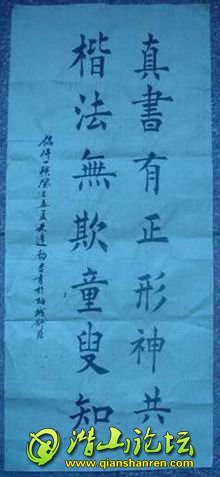 真書有正形神共
楷法無欺童叟知
潜山论坛
www.qianshanren.com